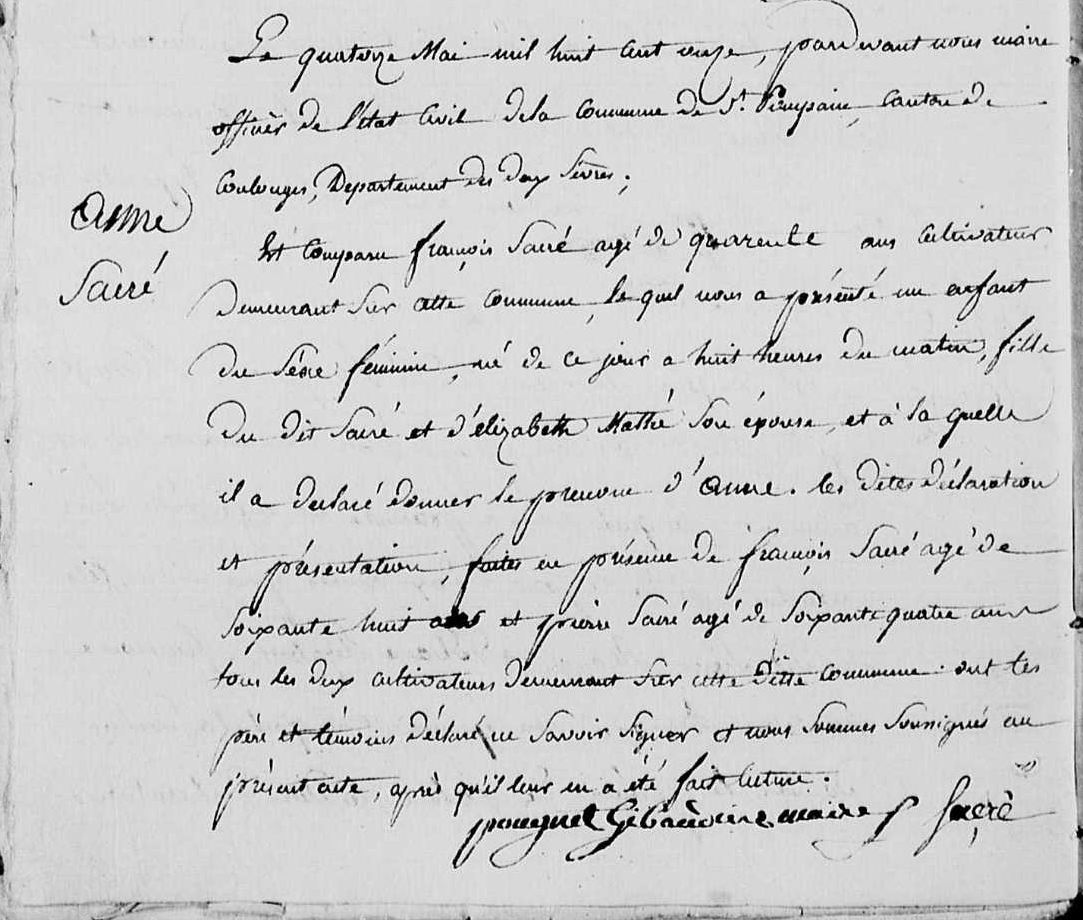 Le quatorze Mai mil huit cent onze, pardevant nous maire
officier de l'état Civil de la Commune de St. Pompain, Canton de
Coulonges, Département des deux Sèvres;
Anne
Sacré
Est Comparu françois Sacré agé de quarente ans Cultivateur
demeurant sur cette commune, le quel nous a présenté un enfant
du séxe féminin, né de ce jour a huit heures du matin, fille
du dit Sacré et d'élizabeth Mathé son épouse, et à la quelle
il a declaré donner le prenom d'anne. les dites déclaration
et présentation, faites en présence de françois Sacré agé de
soixante huit ans et pierre Sacré agé de soixante quatre ans
tous les deux cultivateurs demeurant sur cette ditte commune. ont les
père et témoins déclaré ne savoir signer et nous sommes soussignés au
présent acte, après qu'il leur en a été fait lecture.
maire f Sacré